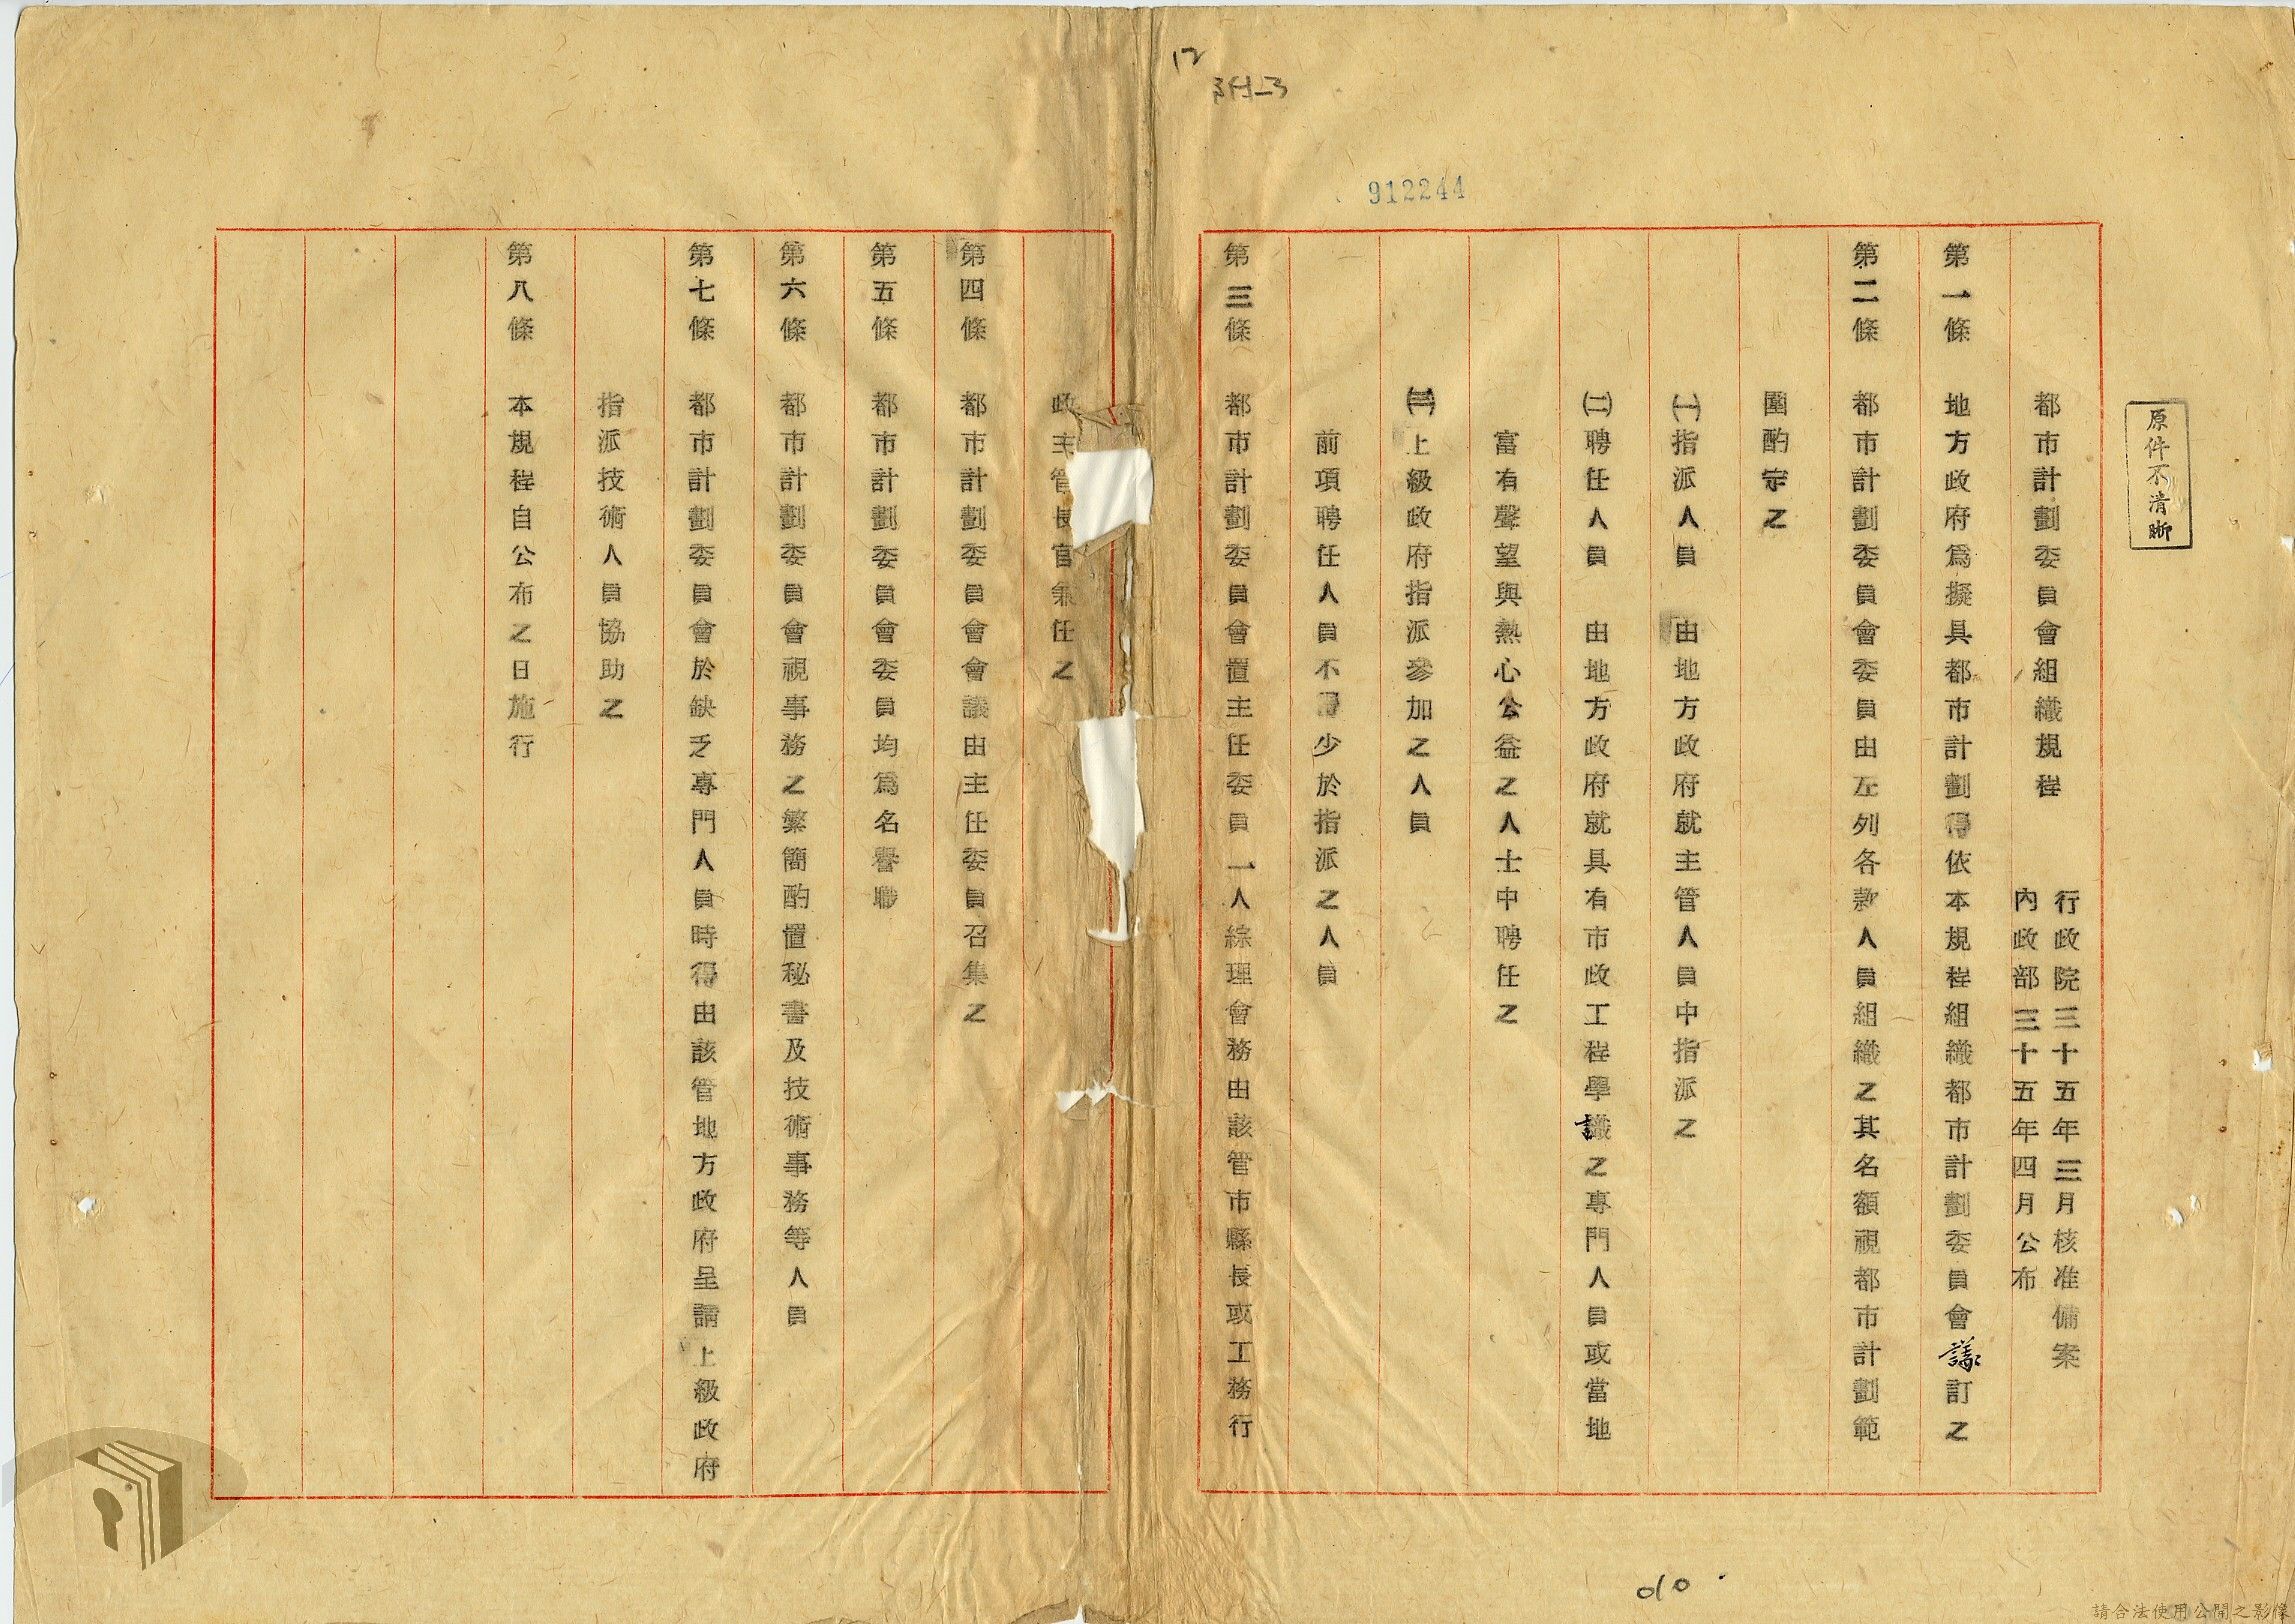 12
912244
原件不清晰
都市計劃委員會組織規程
行政院三十五年三月核准備案
內政部三十五年四月公布
第一條 地方政府為擬具都市計劃得依本規程組織都市計劃委員會議訂之
第二條 都市計劃委員會委員由左列各款人員組織之其名額視都市計劃範
圍酌定之
㈠指派人員 由地方政府就主管人員中指派之
㈡聘任人員 由地方政府就具有市政工程學識之專門人員或當地
富有聲望與熱心公益之人士中聘任之
㈢上級政府指派參加之人員
前項聘任人員不得少於指派之人員
第三條 都市計劃委員會置主任委員一人綜理會務由該管市縣長或工務行
政主管長官兼任之
第四條 都市計劃委員會會議由主任委員召集之
第五條 都市計劃委員會委員均為名譽職
第六條 都市計劃委員會視事務之繁簡酌置秘書及技術事務等人員
第七條 都市計劃委員會於缺乏專門人員時得由該管地方政府呈請上級政府
指派技術人員協助之
第八條 本規程自公布之日施行
010
請合法使用公開之影像